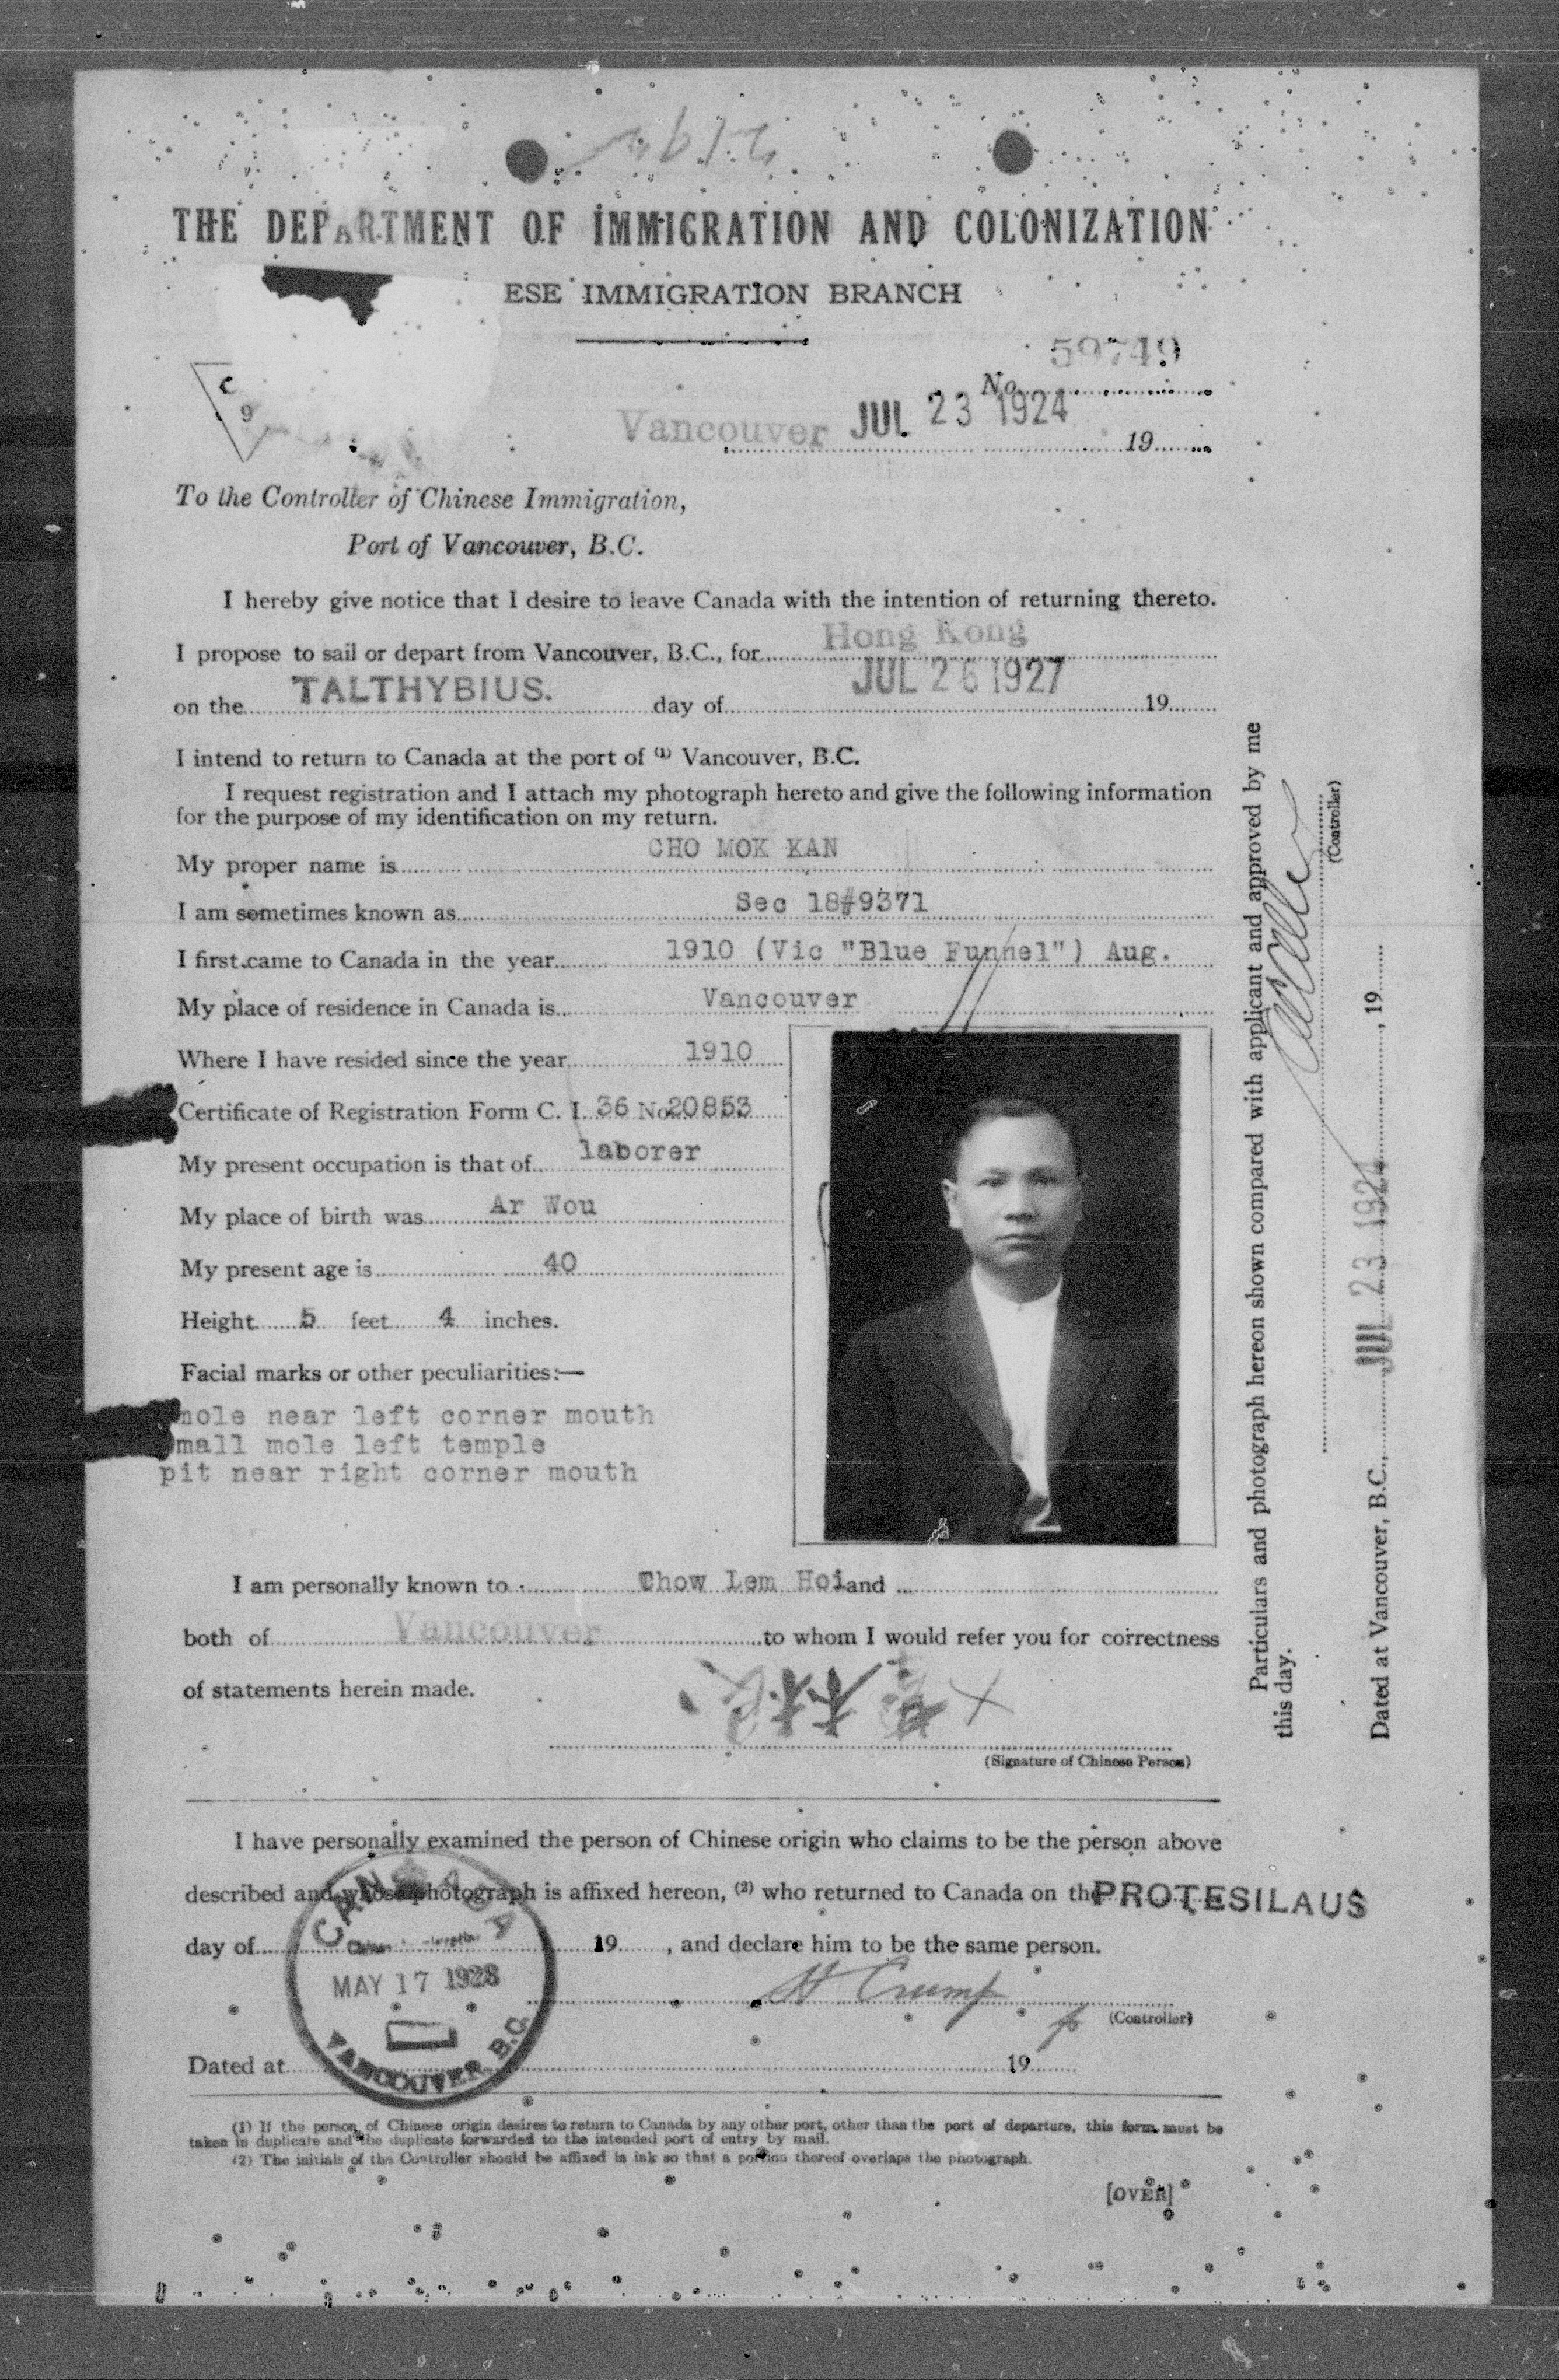 THE DEPARTMENT OF IMMIGRATION AND COLONIZATION
ESE IMMIGRATION BRANCH
C
9
59749
No.
Vancouver JUL 23 1924 19
To the Controller of Chinese Immigration,
Port of Vancouver, B.C.
I hereby give notice that I desire to leave Canada with the intention of returning thereto.
I propose to sail or depart from Vancouver, B.C., for Hong Kong
on the TALTHYBIUS. day of JUL 26 1927 19
I intend to return to Canada at the port of (1) Vancouver, B.C.
I request registration and I attach my photograph hereto and give the following information
for the purpose of my identification on my return.
My proper name is CHO MOK KAN
I am sometimes known as Sec 18#9371
I first came to Canada in the year 1910 (Vic "Blue Funnel") Aug.
My place of residence in Canada is Vancouver
Where I have resided since the year 1910
Certificate of Registration Form C. I. 36 No 20853
My present occupation is that of laborer
My place of birth was Ar Wou
My present age is 40
Height 5 feet 4 inches.
Facial marks or other peculiarities:—
mole near left corner mouth
mall mole left temple
pit near right corner mouth
2
I am personally known to Chow Lem Hoi and
both of Vancouver to whom I would refer you for correctness
of statements herein made.
(Signature of Chinese Person)
I have personally examined the person of Chinese origin who claims to be the person above
described and whose photograph is affixed hereon, (2) who returned to Canada on the PROTESILAUS
day of 19 , and declare him to be the same person.
CANADA
MAY 17 1928
VANCOUVER, B.C.
H Crump
(Controller)
Dated at 19
(1) If the person of Chinese origin desires to return to Canada by any other port, other than the port of departure, this form must be
taken in duplicate and the duplicate forwarded to the intended port of entry by mail.
(2) The initials of the Controller should be affixed in ink so that a portion thereof overlaps the photograph.
[OVER]
Particulars and photograph hereon shown compared with applicant and approved by me
this day.
(Controller)
Dated at Vancouver, B.C., JUL 23 1924, 19